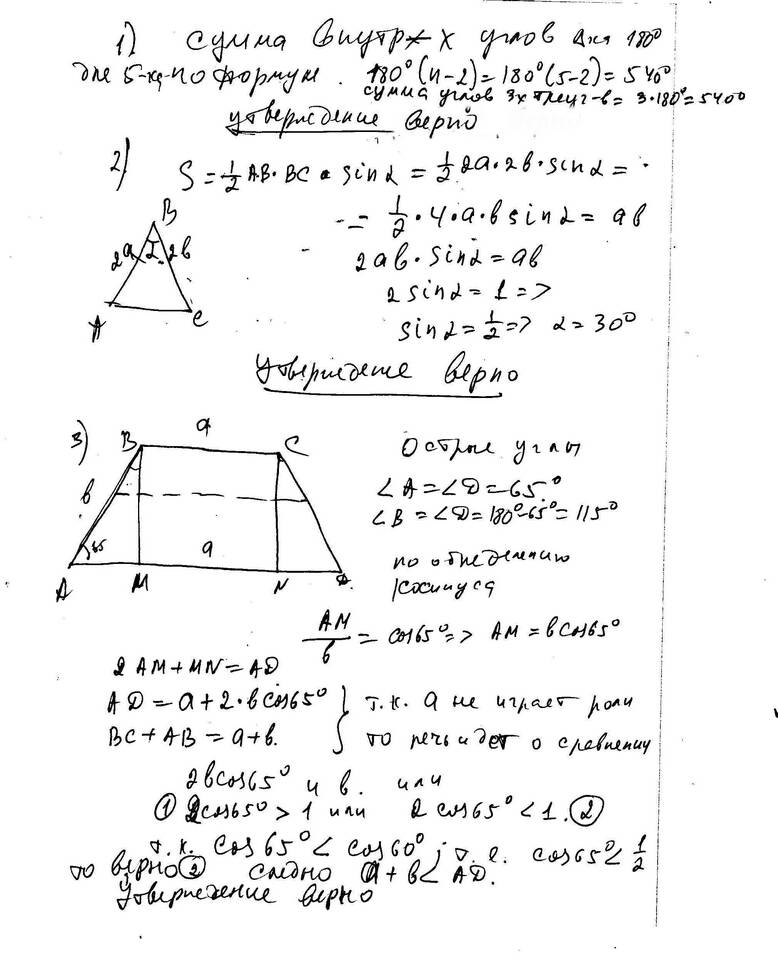 1) Сумма внутр-х углов Δка 180°
для 5-ка-по формул. 180°(n-2)=180°(5-2)=540°
сумма углов 3х треуг-в=3·180°=540°
утверждение верно
2) S=½AB·BC·sinα=½2a·2b·sinα=
=½·4·a·b sinα=ab
2ab·sinα=ab
2sinα=1=>
sinα=½=>α=30°
B
2a α 2b
A C
Утверждение верно
3) B a C
b
65 a
A M N D
Острые углы
∠A=∠D=65°
∠B=∠D=180°-65°=115°
по определению
косинуса
AM/b=cos65°=>AM=bcos65°
2AM+MN=AD
AD=a+2·bcos65°
BC+AB=a+b.
} т.к. a не играет роли
то речь идет о сравнении
2bcos65° и b. или
① 2cos65°>1 или 2cos65°<1.②
т.к. cos65°<cos60°; т.е. cos65<½
то верно② следно a+b<AD.
Утверждение верно